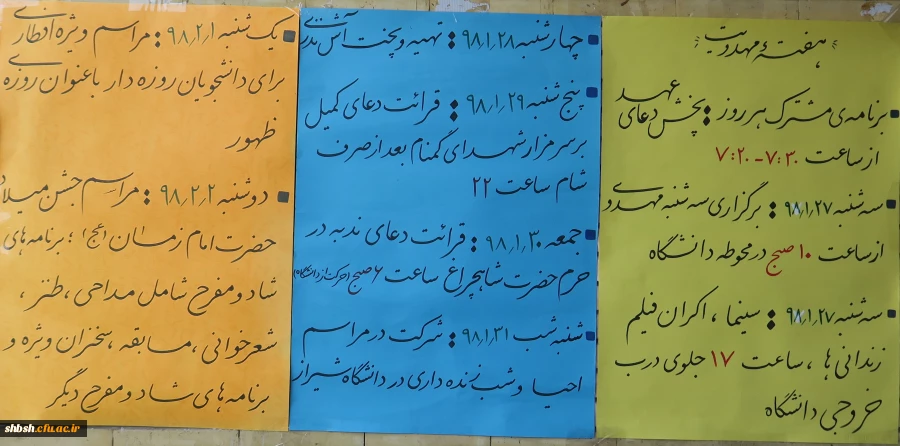 هفتهٔ مهدویت
برنامه‌ی مشترک هر روز : پخش دعای عهد
از ساعت ۷:۳۰ - ۷:۲۰
سه شنبه ۹۸٫۱٫۲۷ : برگزاری سه شنبه مهدوی
از ساعت ۱۰ صبح در محوطه دانشگاه
سه شنبه ۹۸٫۱٫۲۷ : سینما ، اکران فیلم
زندانی ها ، ساعت ۱۷ جلوی درب
خروجی دانشگاه
چهارشنبه ۹۸٫۱٫۲۸ : تهیه و پخت آش نذری
پنج شنبه ۹۸٫۱٫۲۹ : قرائت دعای کمیل
بر سر مزار شهدای گمنام بعد از صرف
شام ساعت ۲۲
جمعه ۹۸٫۱٫۳۰ : قرائت دعای ندبه در
حرم حضرت شاهچراغ ساعت ۶ صبح (حرکت از دانشگاه)
شنبه شب ۹۸٫۱٫۳۱ : شرکت در مراسم
احیا و شب زنده داری در دانشگاه شیراز
یک شنبه ۹۸٫۲٫۱ : مراسم ویژه افطاری
برای دانشجویان روزه دار با عنوان روزه
ظهور
دوشنبه ۹۸٫۲٫۲ : مراسم جشن میلاد
حضرت امام زمان (عج) ؛ برنامه های
شاد و مفرح شامل مداحی ، طنز ،
شعرخوانی ، مسابقه ، سخنران ویژه و
برنامه های شاد و مفرح دیگر
shbsh.cfu.ac.ir